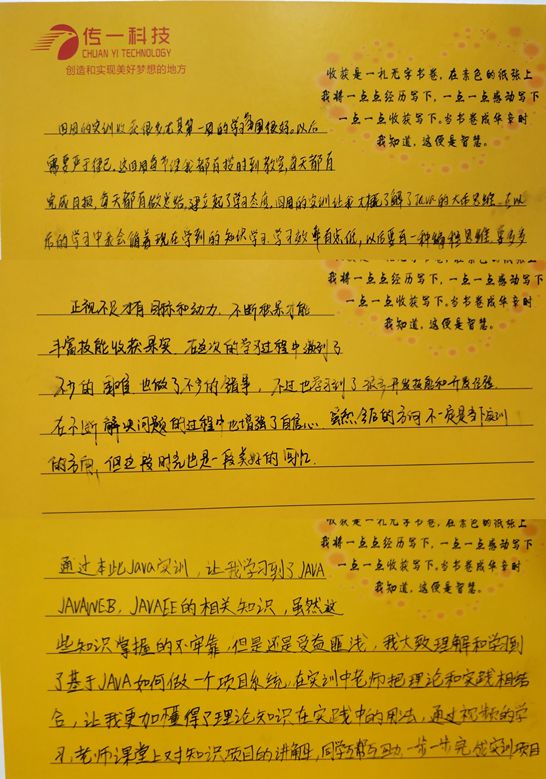 传一科技
CHUAN YI TECHNOLOGY
创造和实现美好梦想的地方
收获是一扎无字书卷，在素色的纸张上
我将一点点经历写下，一点一点感动写下
一点一点收获写下。当书卷成华章时
我知道，这便是智慧。
四周的实训收获很多尤其第一周的学习氛围很好。以后
需要严于律己，这四周每节课我都有按时到教室，每天都有
完成日报，每天都有做总结，建立起了学习态度，四周的实训让我大概了解了JAVA的大体思维，在以
后的学习中我会循着现在学到的知识学习，学习效率有点低，以后要有一种思维要多多
我将一点点经历写下，一点一点感动写下
一点一点收获写下。当书卷成华章时
我知道，这便是智慧。
正视不足才有目标和动力，不断探索才能
丰富技能收获果实，在这次的学习过程中遇到了
不少的困难也做了不少的错事，不过也学习到了很多开发技能和开发经验
在不断解决问题的过程中也增强了自信心。虽然今后的方向不一定是当下实训
的方向，但这段时光也是一段美好的回忆.
收获是一扎无字书卷，在素色的纸张上
我将一点点经历写下，一点一点感动写下
一点一点收获写下。当书卷成华章时
我知道，这便是智慧。
通过本此Java实训，让我学习到了JAVA
JAVAWEB、JAVAEE的相关知识，虽然这
些知识掌握的不牢靠，但是还是受益匪浅，我大致理解和学习到
了基于JAVA如何做一个项目系统，在实训中老师把理论和实践相结
合，让我更加懂得了理论知识在实践中的用法，通过视频的学
习，老师课堂上对知识项目的讲解，同学互帮互助，一步一步完成实训项目